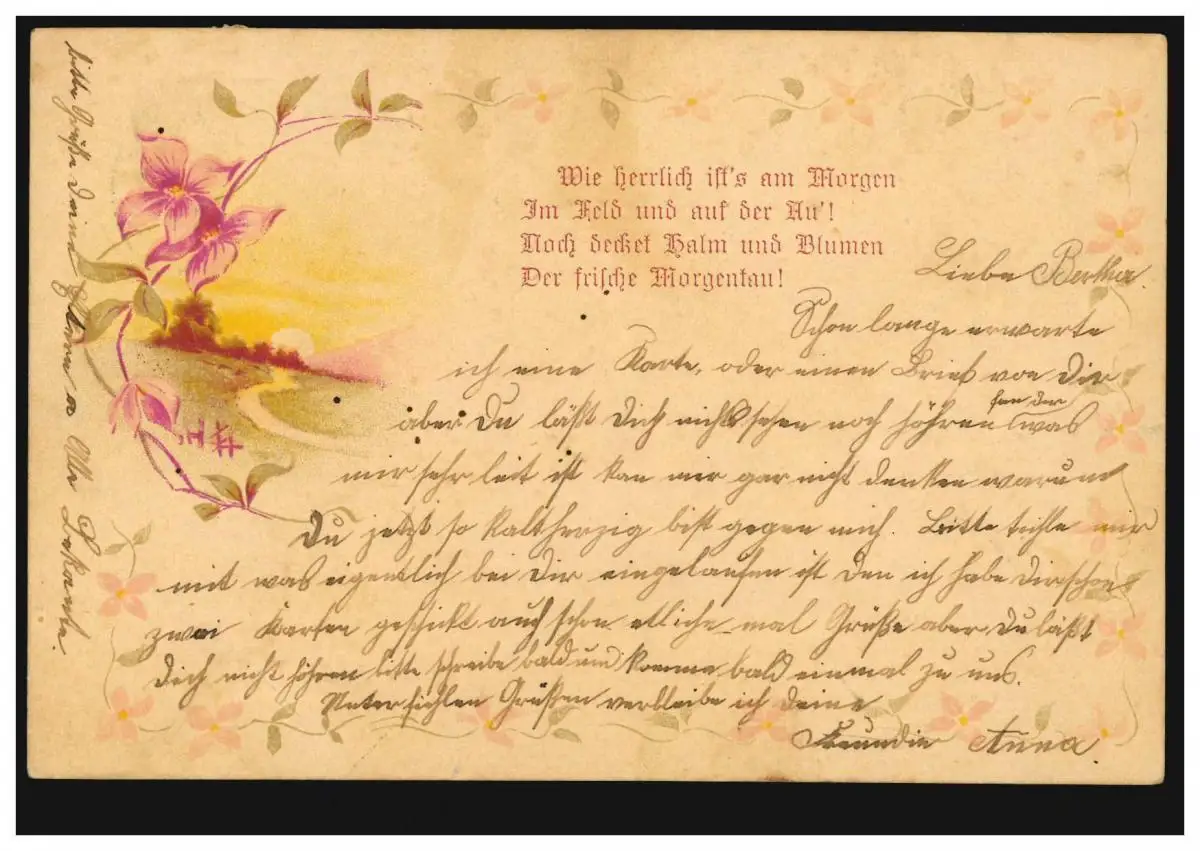 Wie herrlich ist's am Morgen
Im Feld und auf der Au'!
Noch decket Halm und Blumen
Der frische Morgentau!
Liebe Bertha.
Schon lange erwarte
ich eine Karte, oder einen Brief von Dir
aber Du läßt Dich nicht sehen noch höhren was
mir sehr leit ist kan mir gar nicht denken warum
Du jetzt so kaltherzig bist gegen mich. Bitte teihle mir
mit was eigentlich bei Dir eingelaufen ist den ich habe Dir schon
zwei Karten geschickt auch schon etliche mal Grüße aber Du läßt
Dich nicht höhren bitte schreibe bald und komme bald einmal zu uns.
Unter Grüßen verbleibe ich deine
Freundin Anna.
bitte Grüße deine Eltern u Alle Bekante.